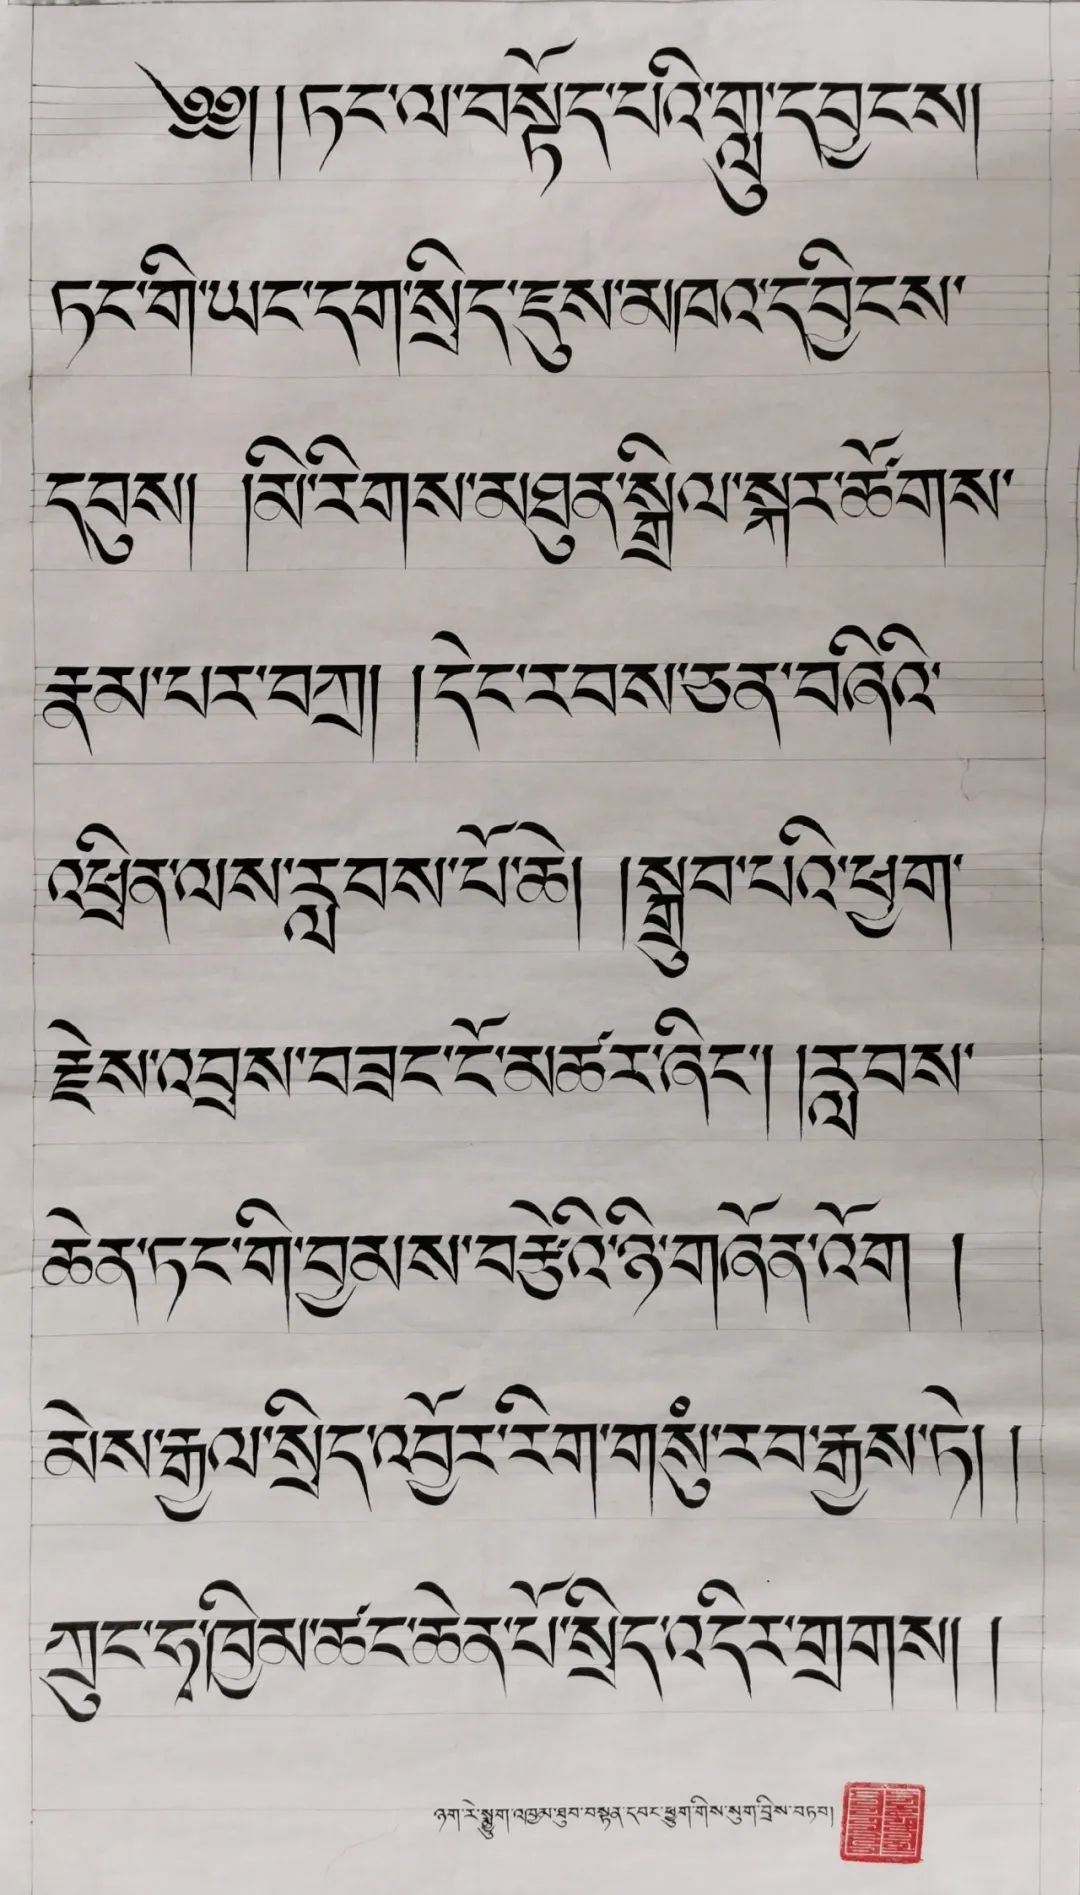 ༄༅། །ཏང་ལ་བསྟོད་པའི་གླུ་དབྱངས།
ཏང་གི་ཡང་དག་སྲིད་ཇུས་མཁའ་དབྱིངས་
དབུས། །མི་རིགས་མཐུན་སྒྲིལ་སྐར་ཚོགས་
རྣམ་པར་བཀྲ། །དེང་རབས་ཅན་བཞིའི་
འཕྲིན་ལས་རླབས་པོ་ཆེ། །སྒྲུབ་པའི་ཕྱག་
རྗེས་འབྲས་བཟང་ངོ་མཚར་ཞིང་། །རླབས་
ཆེན་ཏང་གི་བྱམས་བརྩེའི་ཉི་གཞོན་འོག །
མེས་རྒྱལ་སྲིད་འབྱོར་རིག་གསུཾ་རབ་རྒྱས་ཏེ། །
ཀྲུང་ཧྭ་ཁྱིམ་ཚང་ཆེན་པོ་སྲིད་འདིར་གྲགས། །
ཉག་རེ་སྨྱུག་འཁྱམ་ཐུབ་བསྟན་དབང་ཕྱུག་གིས་སུག་བྲིས་བཏབ།